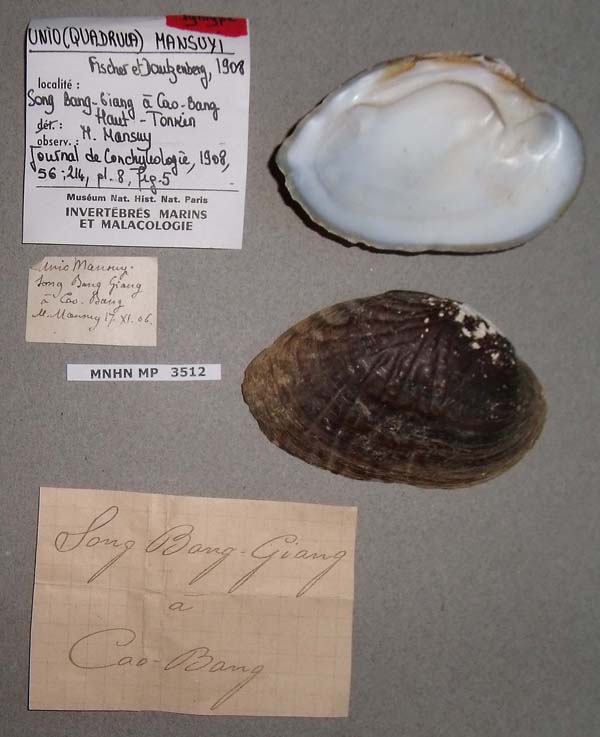 syntype
UNIO (QUADRULA) MANSUYI
Fischer et Dautzenberg, 1908
localité :
Song Bang-Giang à Cao-Bang
Haut-Tonkin
dét. :
M. Mansuy
observ. :
Journal de Conchyliologie, 1908,
56 : 214, pl. 8, fig. 5
Muséum Nat. Hist. Nat. Paris
INVERTÉBRÉS MARINS
ET MALACOLOGIE
Unio Mansuy.
Song Bang Giang
à Cao-Bang
M. Mansuy 17. XI. 06.
MNHN MP 3512
Song Bang-Giang
à
Cao-Bang